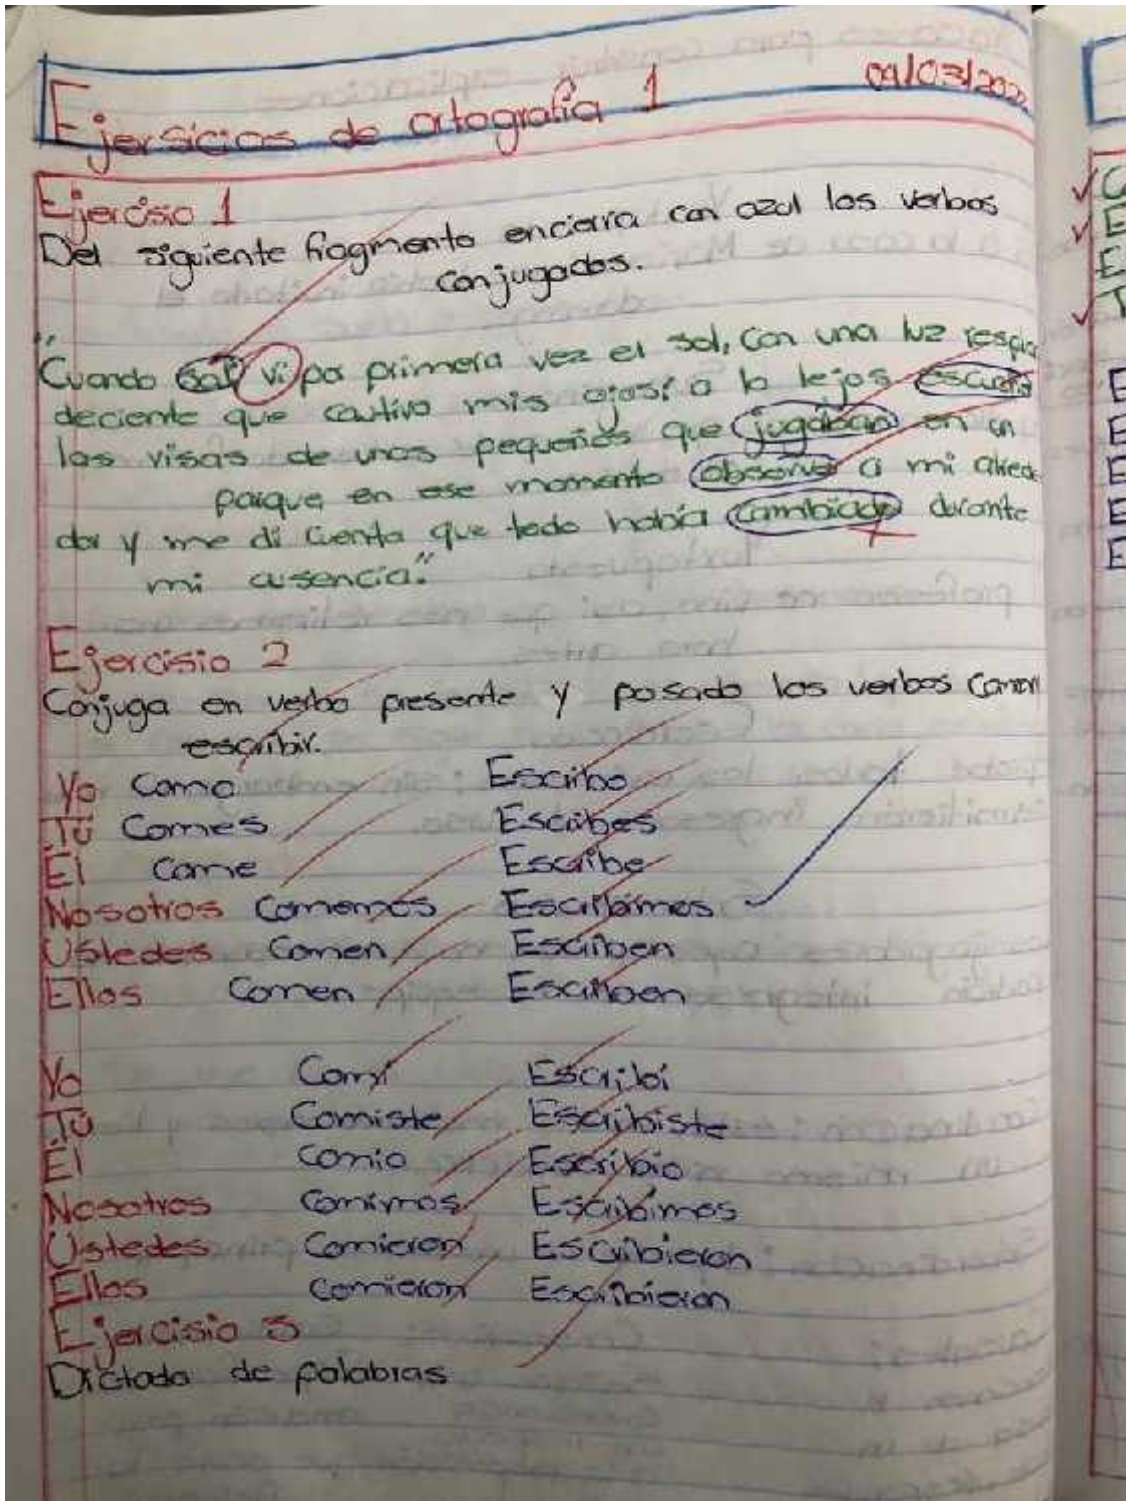 Ejersicios de ortografía 1 09/03/202
Ejercisio 1
Del siguiente fragmento encierra con azul los verbos
conjugados.
"Cuando salí vi por primera vez el sol, con una luz respla
deciente que cautivo mis ojos; a lo lejos escuche
las risas de unos pequeños que jugaban en un
parque en ese momento observe a mi alrede
dor y me di cuenta que todo había cambiado durante
mi ausencia."
Ejercisio 2
Conjuga en verbo presente y pasado los verbos comer
escribir.
Yo Como Escribo
Tú Comes Escribes
El Come Escribe
Nosotros Comemos Escribimos
Ustedes Comen Escriben
Ellos Comen Escriben
Yo Comí Escribí
Tú Comiste Escribiste
Él Comio Escribio
Nosotros Comimos Escribimos
Ustedes Comieron Escribieron
Ellos Comieron Escribieron
Ejercisio 3
Dictado de palabras